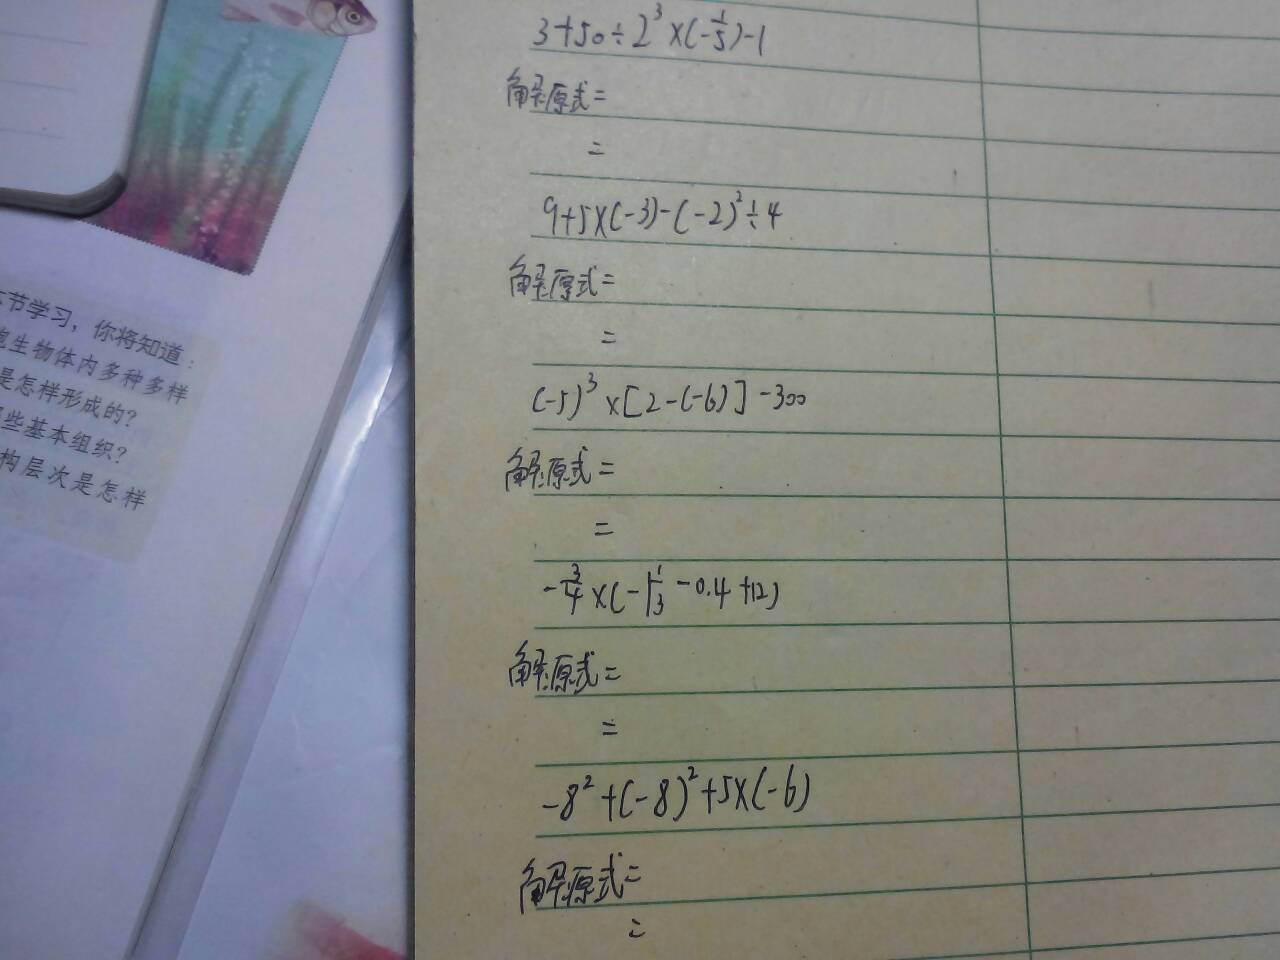 本节学习，你将知道：
胞生物体内多种多样
是怎样形成的？
哪些基本组织？
构层次是怎样
3+50÷2³×(-1/5)-1
解:原式=
=
9+5×(-3)-(-2)²÷4
解:原式=
=
(-5)³×[2-(-6)]-300
解:原式=
=
-3/4×(-1 1/3-0.4+12)
解:原式=
=
-8²+(-8)²+5×(-6)
解:原式=
=